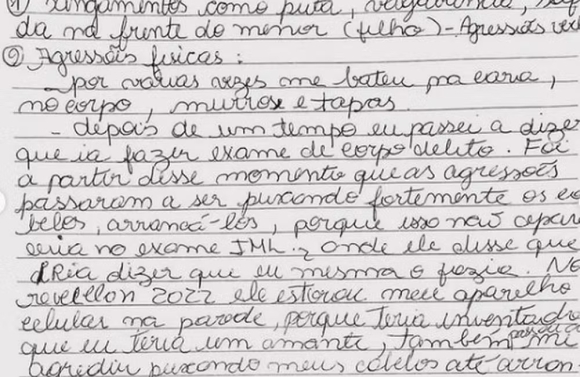 ① xingamentos como puta, vagabunda,
da na frente do menor (filho) - Agressões
② Agressões físicas:
- por várias vezes me bateu na cara,
no corpo, murros e tapas.
- depois de um tempo eu passei a dizer
que ia fazer exame de corpo delito. Foi
a partir disse momento que as agressões
passaram a ser puxando fortemente os ca
belos, arrancá-los, porque isso não apare
ceria no exame IML., onde ele disse que
iRia dizer que eu mesma o fazia. No
reveillon 2022 ele estorou meu aparelho
celular na parede, porque teria inventado
que eu teria um amante, também me
agrediu puxando meus cabelos até arran